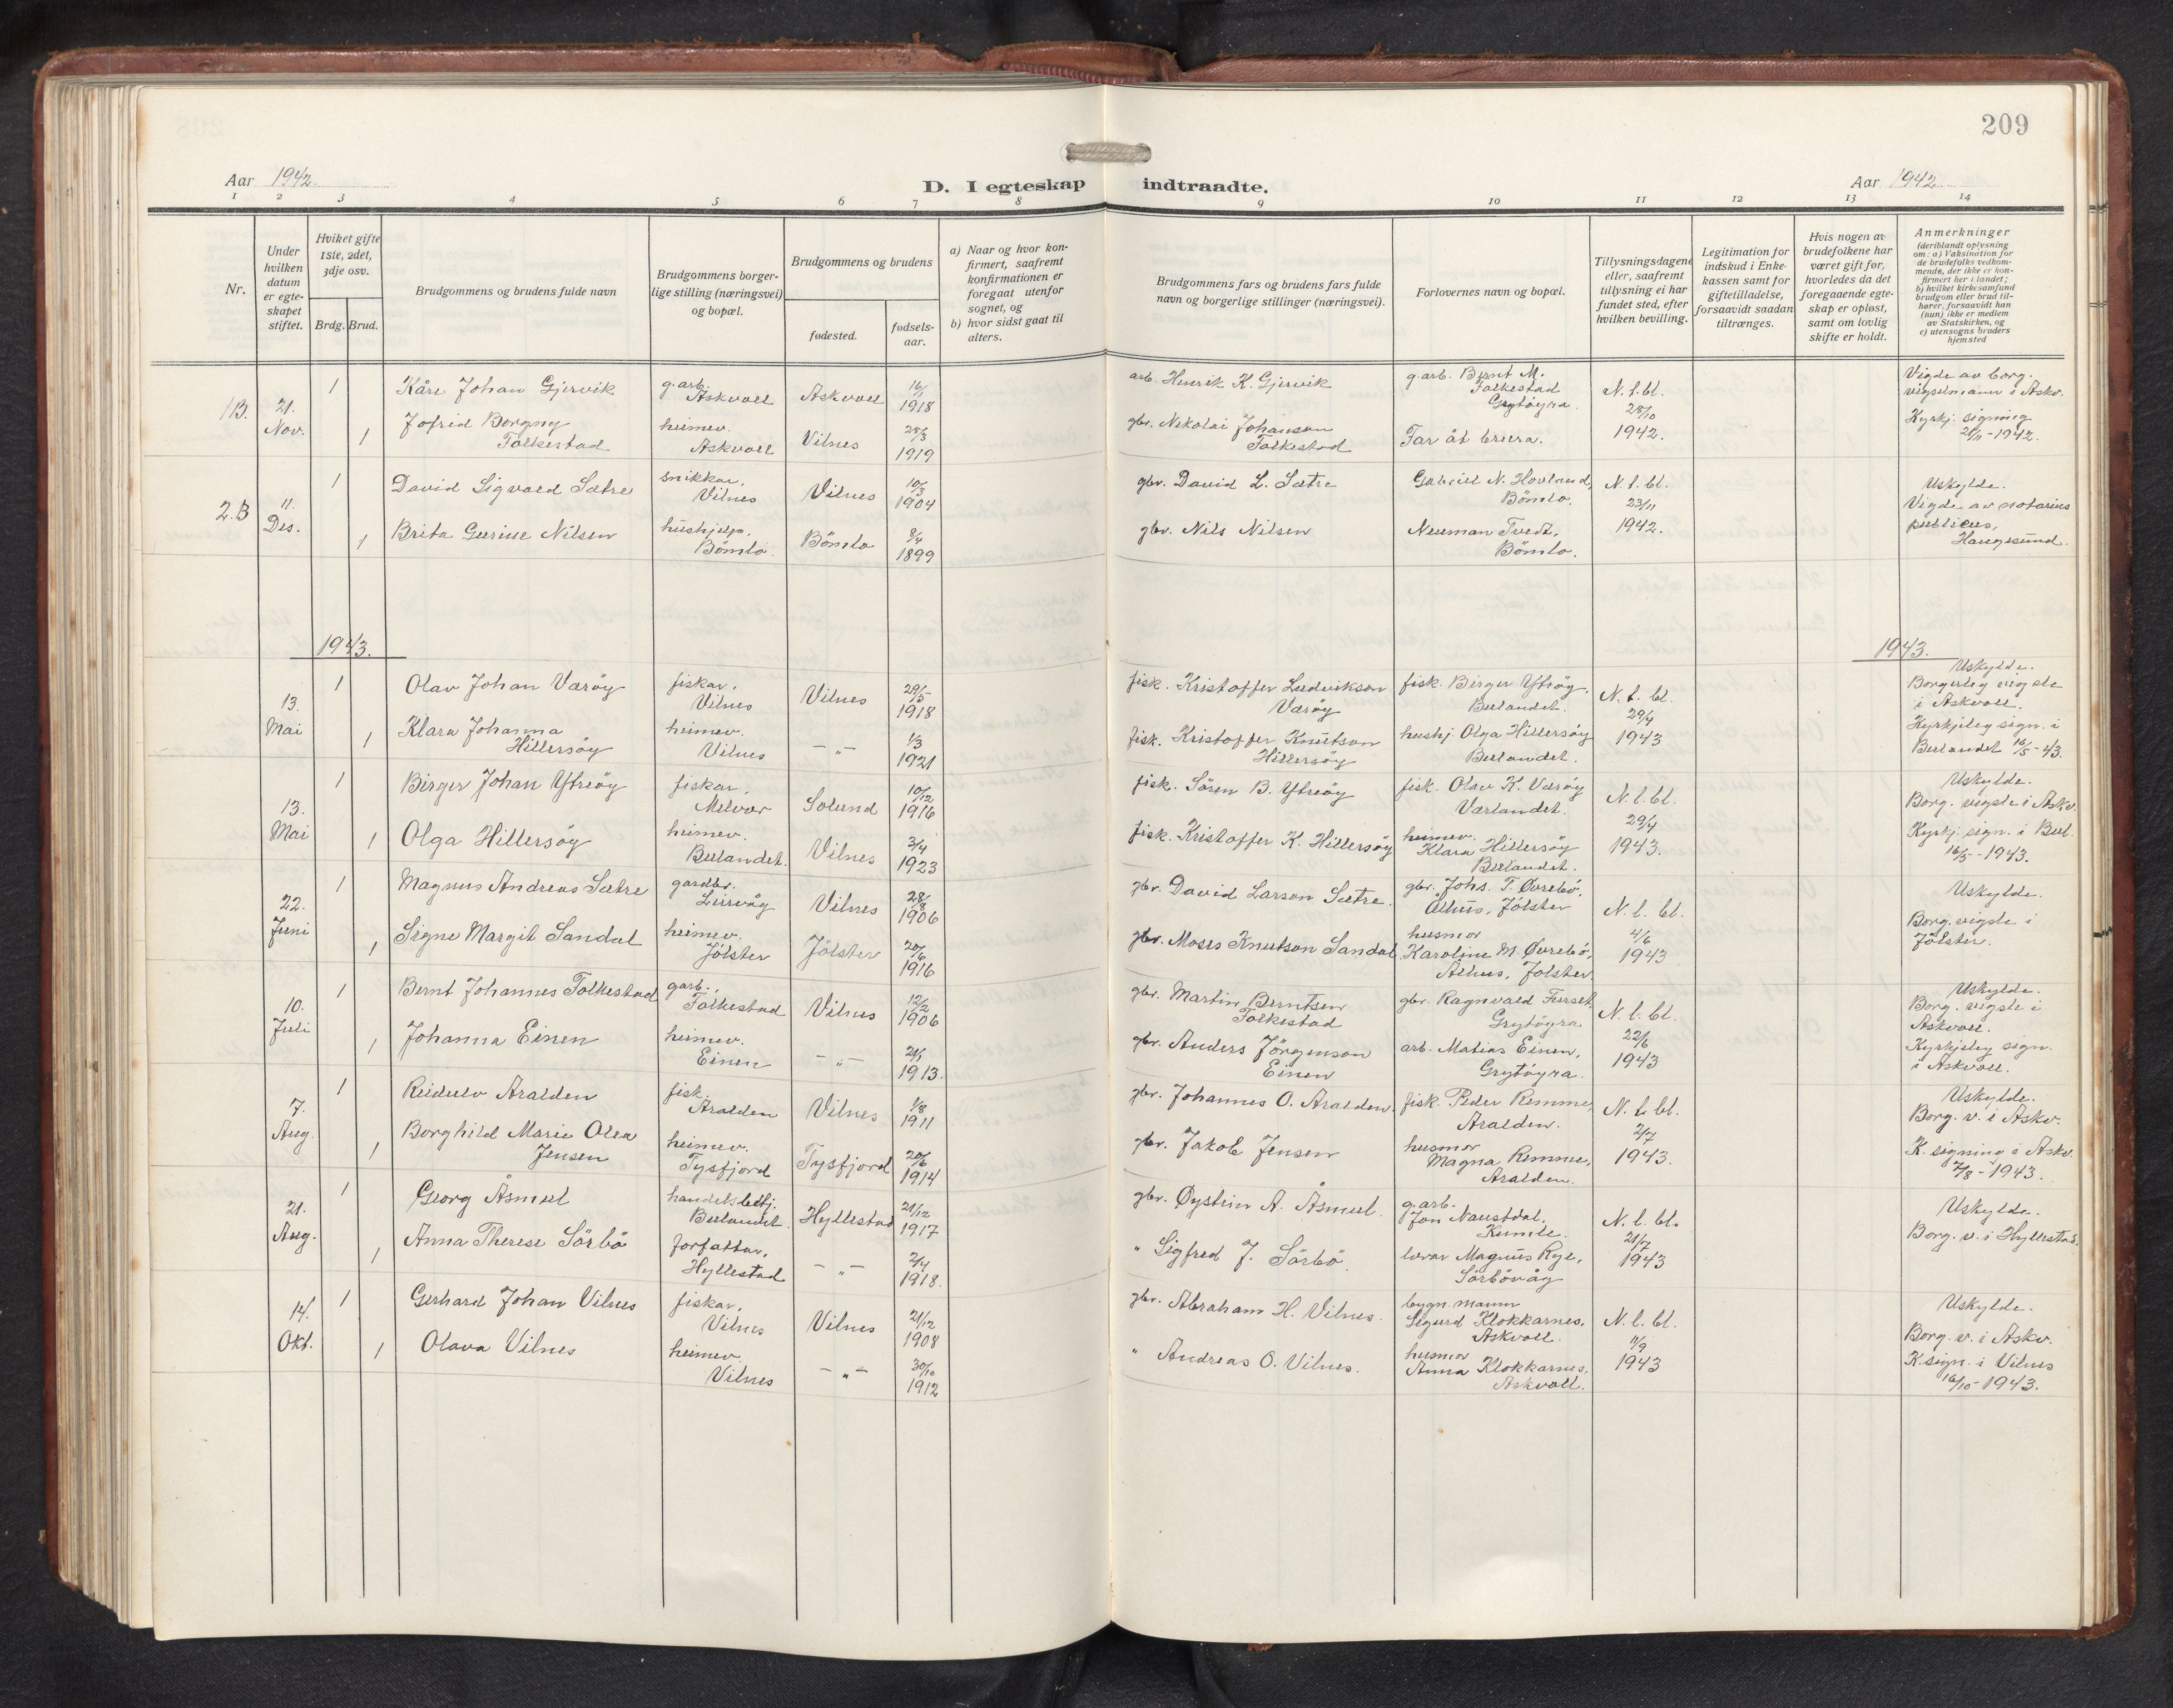 209
Aar 1942.
D. I egteskap indtraadte.
Aar 1942
1 2 3 4 5 6 7 8 9 10 11 12 13 14
Nr.
Under hvilken datum er egte-skapet stiftet.
Hviket gifte 1ste, 2det, 3dje osv.
Brdg. Brud.
Brudgommens og brudens fulde navn
Brudgommens borger-lige stilling (næringsvei) og bopæl.
Brudgommens og brudens
fødested.
fødsels-aar.
a) Naar og hvor kon-firmert, saafremt konfirmationen er foregaat utenfor sognet, og
b) hvor sidst gaat til alters.
Brudgommens fars og brudens fars fulde navn og borgerlige stillinger (næringsvei).
Forlovernes navn og bopæl.
Tillysningsdagene eller, saafremt tillysning ei har fundet sted, efter hvilken bevilling.
Legitimation for indskud i Enke-kassen samt for giftetilladelse, forsaavidt saadan tiltrænges.
Hvis nogen av brudefolkene har været gift før, hvorledes da det foregaaende egte-skap er opløst, samt om lovlig skifte er holdt.
Anmerkninger
(deriblandt oplysning om: a) Vaksination for de brudefolks vedkom-mende, der ikke er kon-firmert her i landet; b) hvilket kirkesamfund brudgom eller brud til-hører, forsaavidt han (hun) ikke er medlem av Statskirken, og c) utensogns bruders hjemsted
1B. 21. Nov.
1 Kåre Johan Gjervik g.arb. Askvoll Askvoll 16/1 1918
arb. Henrik K. Gjervik g.arb. Bernt M. Folkestad Grytøyra. N. l. bl. 28/10 1942.
Vigde av borg. vigselmann i Askv.
1 Jofrid Borgny Folkestad heimev. Askvoll Vilnes 28/3 1919
gbr. Nikolai Johanson Folkestad Far åt brura.
Kyrkj. signing 21/11-1942.
2.B 11. Des.
1 David Sigvald Sætre snikkar, Vilnes Vilnes 10/3 1904
gbr. David L. Sætre Gabriel N. Hovland, Bömlo. N. l. bl. 23/11 1942.
Uskylde. Vigde av notarius publicus, Haugesund.
1 Brita Gurine Nilsen hushjelp. Bömlo. Bömlo 8/4 1899
gbr. Nils Nilsen Neuman Tvedt, Bömlo.
1943.
1943.
13. Mai
1 Olav Johan Værøy fiskar, Vilnes Vilnes 29/5 1918
fisk. Kristoffer Ludvikson Værøy fisk. Birger Ytreøy, Bulandet. N. l. bl. 29/4 1943
Uskylde. Borgerleg vigsle i Askvoll.
1 Klara Johanna Hillersøy heimev. Vilnes – „ – 1/3 1921
fisk. Kristoffer Knutson Hillersøy hushj. Olga Hillersøy Bulandet.
Kyrkjeleg sign. i Bulandet 16/5-43.
13. Mai
1 Birger Johan Ytreøy fiskar, Melvær Solund 10/12 1916
fisk. Sören B. Ytreöy fisk. Olav K. Værøy Værlandet. N. l. bl. 29/4 1943.
Uskylde. Borg. vigsle i Askv.
1 Olga Hillersøy heimev. Bulandet. Vilnes 3/4 1923
fisk. Kristoffer K. Hillersøy heimev. Klara Hillersøy Bulandet.
Kyrkj. sign. i Bul. 16/5-1943.
22. Juni
1 Magnus Andreas Sætre gardbr. Leirvåg Vilnes 28/8 1906
gbr. David Larson Sætre. gbr. Johs. T. Øvrebö, Ålhus, Jölster N. l. bl. 4/6 1943
Uskylde. Borg. vigsle i Jölster.
1 Signe Margit Sandal heimev. Jölster Jölster 20/6 1916
gbr. Moses Knutson Sandal. husmor Karoline M. Øvrebö, Ålhus, Jolster.
10. Juli
1 Bernt Johannes Folkestad garb., Folkestad Vilnes 12/2 1906
gbr. Martin Berntsen Folkestad gbr. Ragnvald Furset, Grytöyra. N. l. bl. 22/6 1943
Uskylde. Borg. vigsle i Askvoll.
1 Johanna Einen heimev. Einen – „ – 21/1 1913.
gbr. Anders Jörgenson Einen arb. Matias Einen, Grytöyra.
Kyrkjeleg sign. i Askvoll.
7. Aug.
1 Reidulv Aralden fisk. Aralden Vilnes 1/8 1911
gbr. Johannes O. Aralden. fisk. Peder Remme, Aralden. N. l. bl. 2/7 1943.
Uskylde. Borg. v. i Askv.
1 Borghild Marie Olea Jensen heimev. Tysfjord Tysfjord 20/6 1914
gbr. Jakob Jensen husmor Magna Remme, Aralden.
K. signing i Askv. 7/8-1943.
21. Aug.
1 Georg Åsmul handelsbetj. Bulandet. Hyllestad 21/12 1917
gbr. Øystein A. Åsmul. g.arb. Jon Naustdal, N. l. bl. 21/7 1943
Uskylde. Borg. v. i Hyllestad.
1 Anna Therese Sörbö forfattar, Hyllestad – „ – 2/4 1918.
" Sigfred J. Sörbö. lærar Magnus Rye, Sörbövåg
14. Okt.
1 Gerhard Johan Vilnes fiskar, Vilnes Vilnes 21/12 1908
gbr. Abraham H. Vilnes. bygn.mann Sigurd Klokkarnes, Askvoll. N. l. bl. 11/9 1943
Uskylde. Borg. v. i Askv.
1 Olava Vilnes heimev Vilnes – „ – 30/10 1912
" Andreas O. Vilnes. husmor Anna Klokkarnes, Askvoll.
K.sign. i Vilnes 16/10-1943.